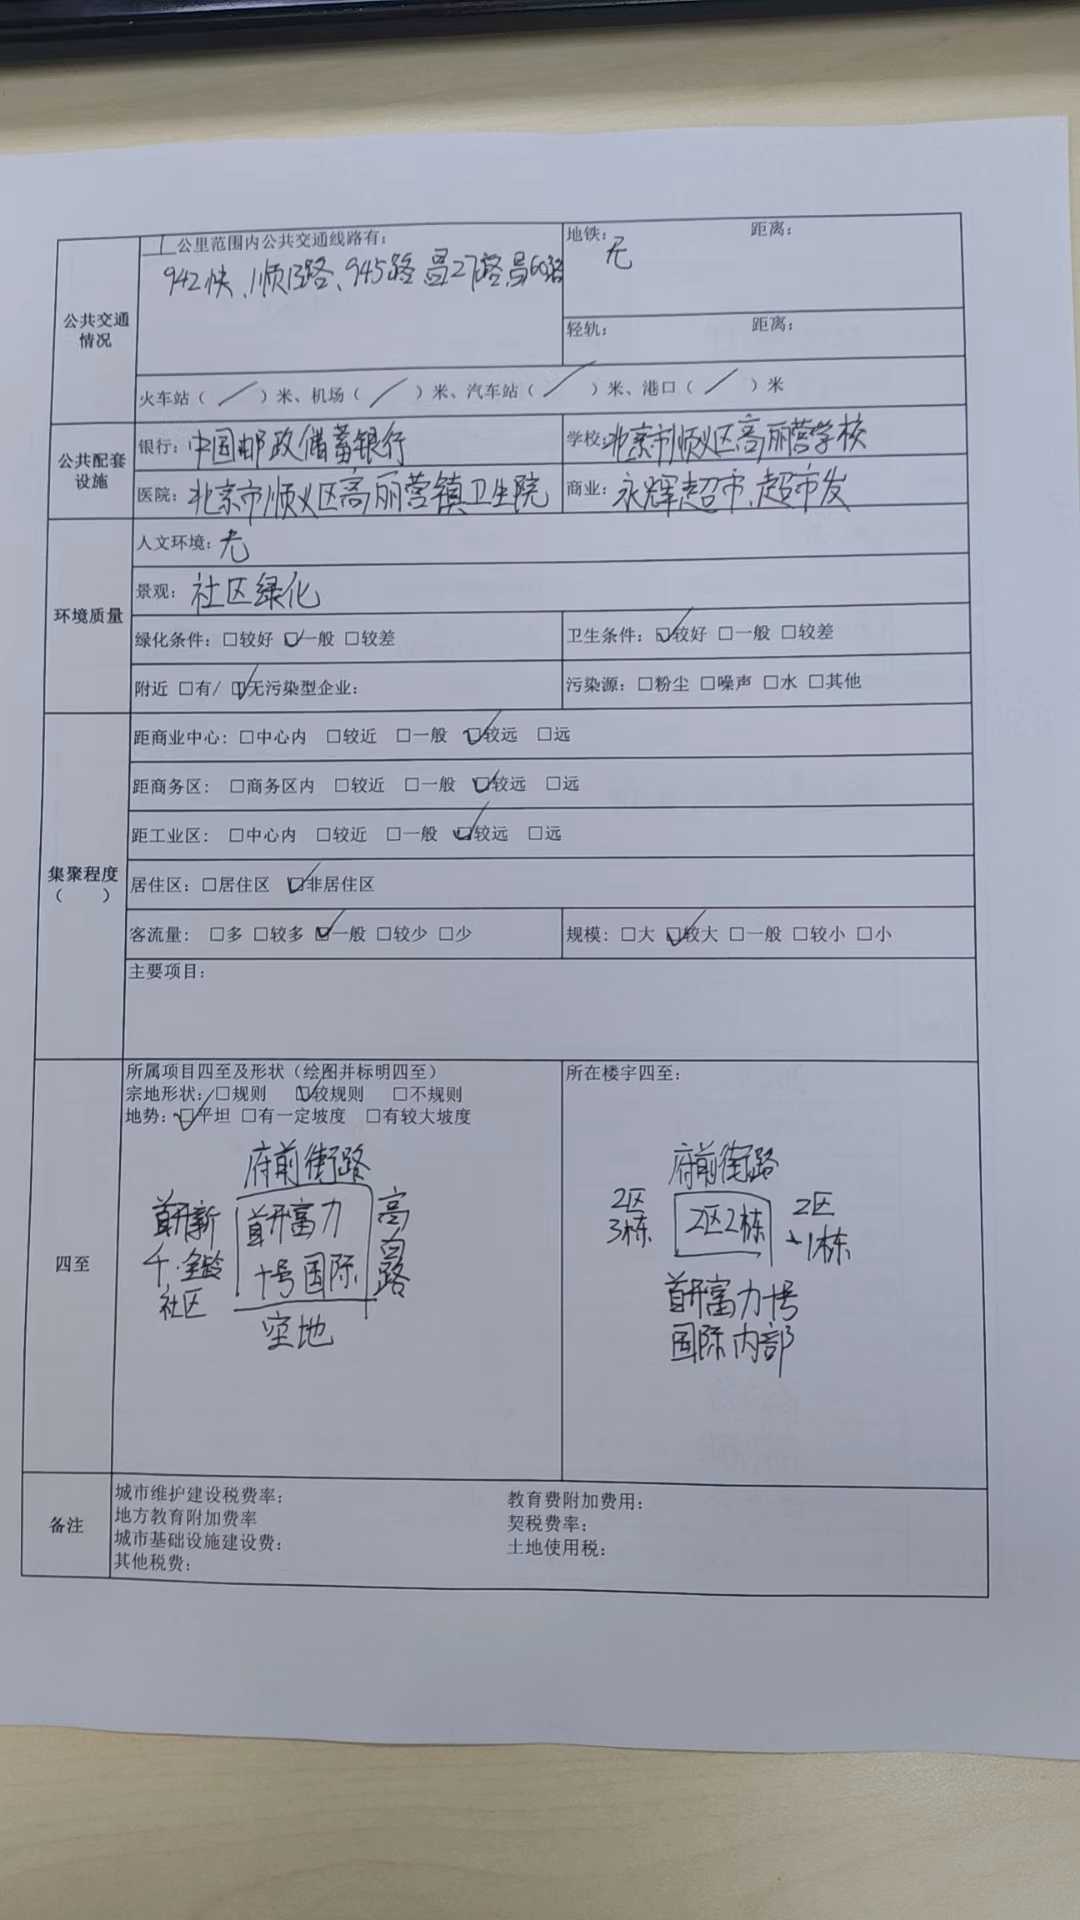 公共交通情况
1 公里范围内公共交通线路有：
942快、顺13路、945路 昌27路、昌60路
地铁： 无 距离：
轻轨： 距离：
火车站（ / ）米、机场（ / ）米、汽车站（ / ）米、港口（ / ）米
公共配套设施
银行：中国邮政储蓄银行
学校：北京市顺义区高丽营学校
医院：北京市顺义区高丽营镇卫生院
商业：永辉超市、超市发
环境质量
人文环境：无
景观：社区绿化
绿化条件：□较好 ☑一般 □较差
卫生条件：☑较好 □一般 □较差
附近 □有/ ☑无污染型企业：
污染源：□粉尘 □噪声 □水 □其他
集聚程度
（ ）
距商业中心：□中心内 □较近 □一般 ☑较远 □远
距商务区： □商务区内 □较近 □一般 ☑较远 □远
距工业区： □中心内 □较近 □一般 ☑较远 □远
居住区：□居住区 ☑非居住区
客流量： □多 □较多 ☑一般 □较少 □少
规模：□大 ☑较大 □一般 □较小 □小
主要项目：
四至
所属项目四至及形状（绘图并标明四至）
宗地形状：□规则 ☑较规则 □不规则
地势：☑平坦 □有一定坡度 □有较大坡度
府前街路
首开新
社区
首开富力
十号国际
高白路
空地
所在楼宇四至：
府前街路
2区
3栋
2区2栋
2区
1栋
首开富力十号
国际内部
备注
城市维护建设税费率：
教育费附加费用：
地方教育附加费率
契税费率：
城市基础设施建设费：
土地使用税：
其他税费：